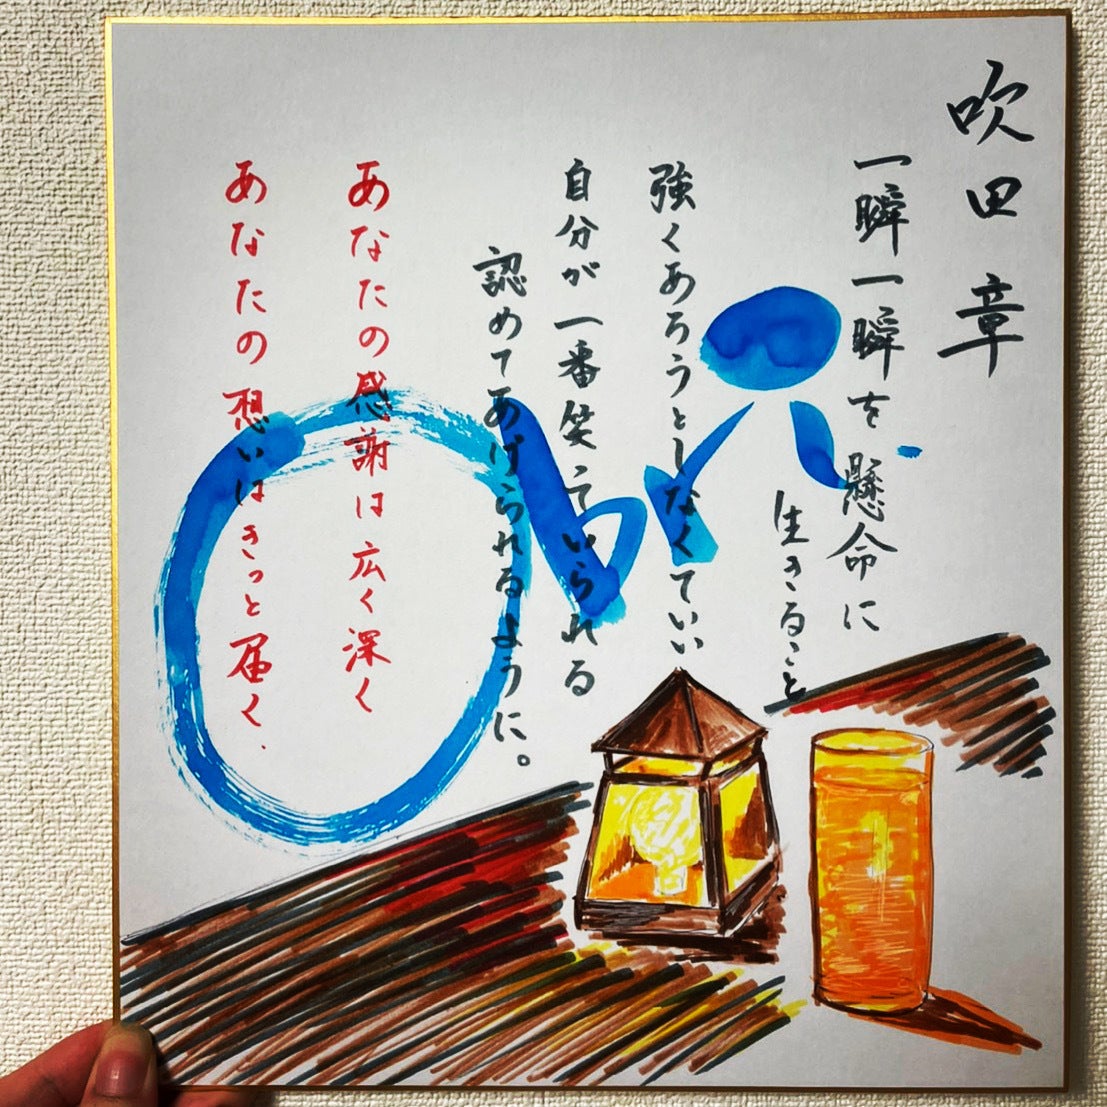 吹田 章
一瞬一瞬を懸命に
生きること
強くあろうとしなくていい
自分が一番笑っていられる
認めてあげられるように。
あなたの感謝は広く深く
あなたの想いはきっと届く.